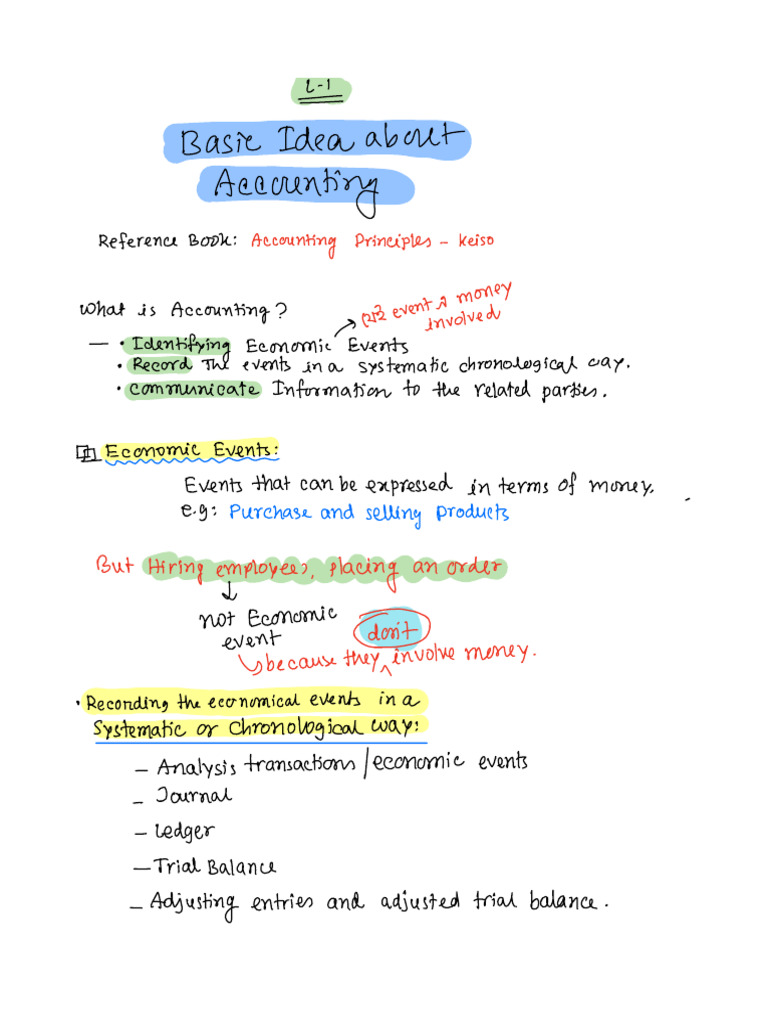 L-1
Basic Idea about
Accounting
Reference Book: Accounting Principles - keiso
What is Accounting?
যেই event এ money
involved
— • Identifying Economic Events
• Record The events in a systematic chronological way.
• Communicate Information to the related parties.
Economic Events:
Events that can be expressed in terms of money.
e.g: Purchase and selling products
But Hiring employees, placing an order
↓
not Economic
event
because they don't involve money.
• Recording the economical events in a
Systematic or chronological way:
— Analysis transactions/economic events
— Journal
— Ledger
— Trial Balance
— Adjusting entries and adjusted trial balance.